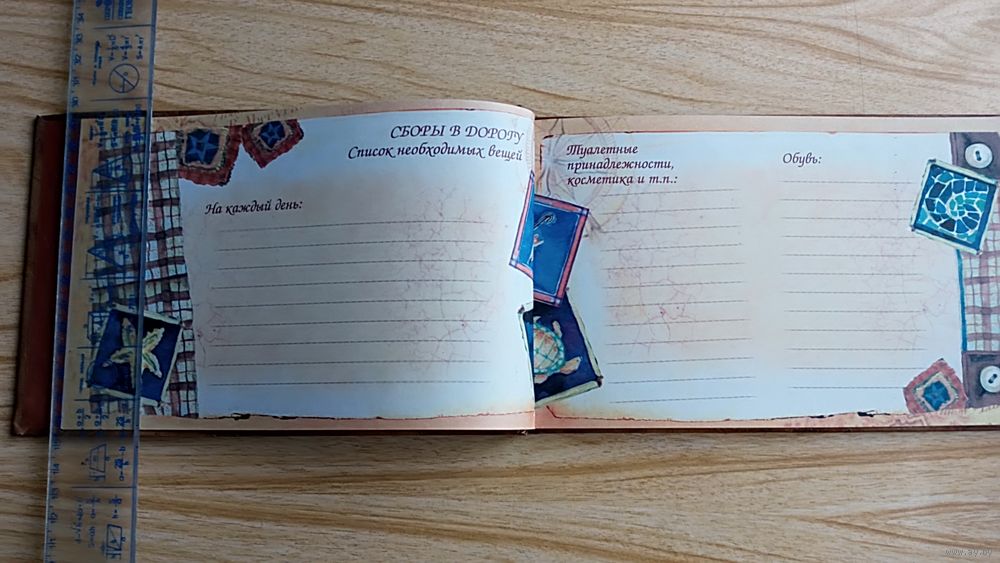 СБОРЫ В ДОРОГУ
Список необходимых вещей
На каждый день:
Туалетные
принадлежности,
косметика и т.п.:
Обувь:
www.ay.by